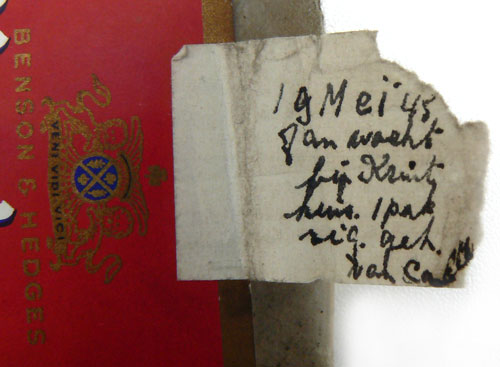 BENSON & HEDGES
VENI VIDI VICI
19 Mei '45
Jan wacht
bij Kruit
huis. 1 pak
sig. geh.
van